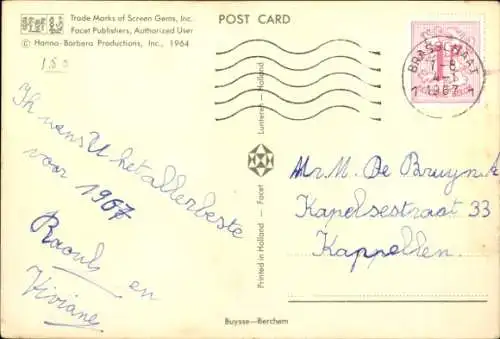 Trade Marks of Screen Gems, Inc.
Facet Publishers, Authorized User
© Hanna-Barbera Productions, Inc., 1964
POST CARD
1.50
BRASSCHAAT
1967
Ik wens U het allerbeste
voor 1967
Raouls en
Viviane
Printed in Holland — Facet
Lunteren - Holland
Mr. M. De Bruynck
Kapelsestraat 33
Kappellen.
Buysse—Berchem